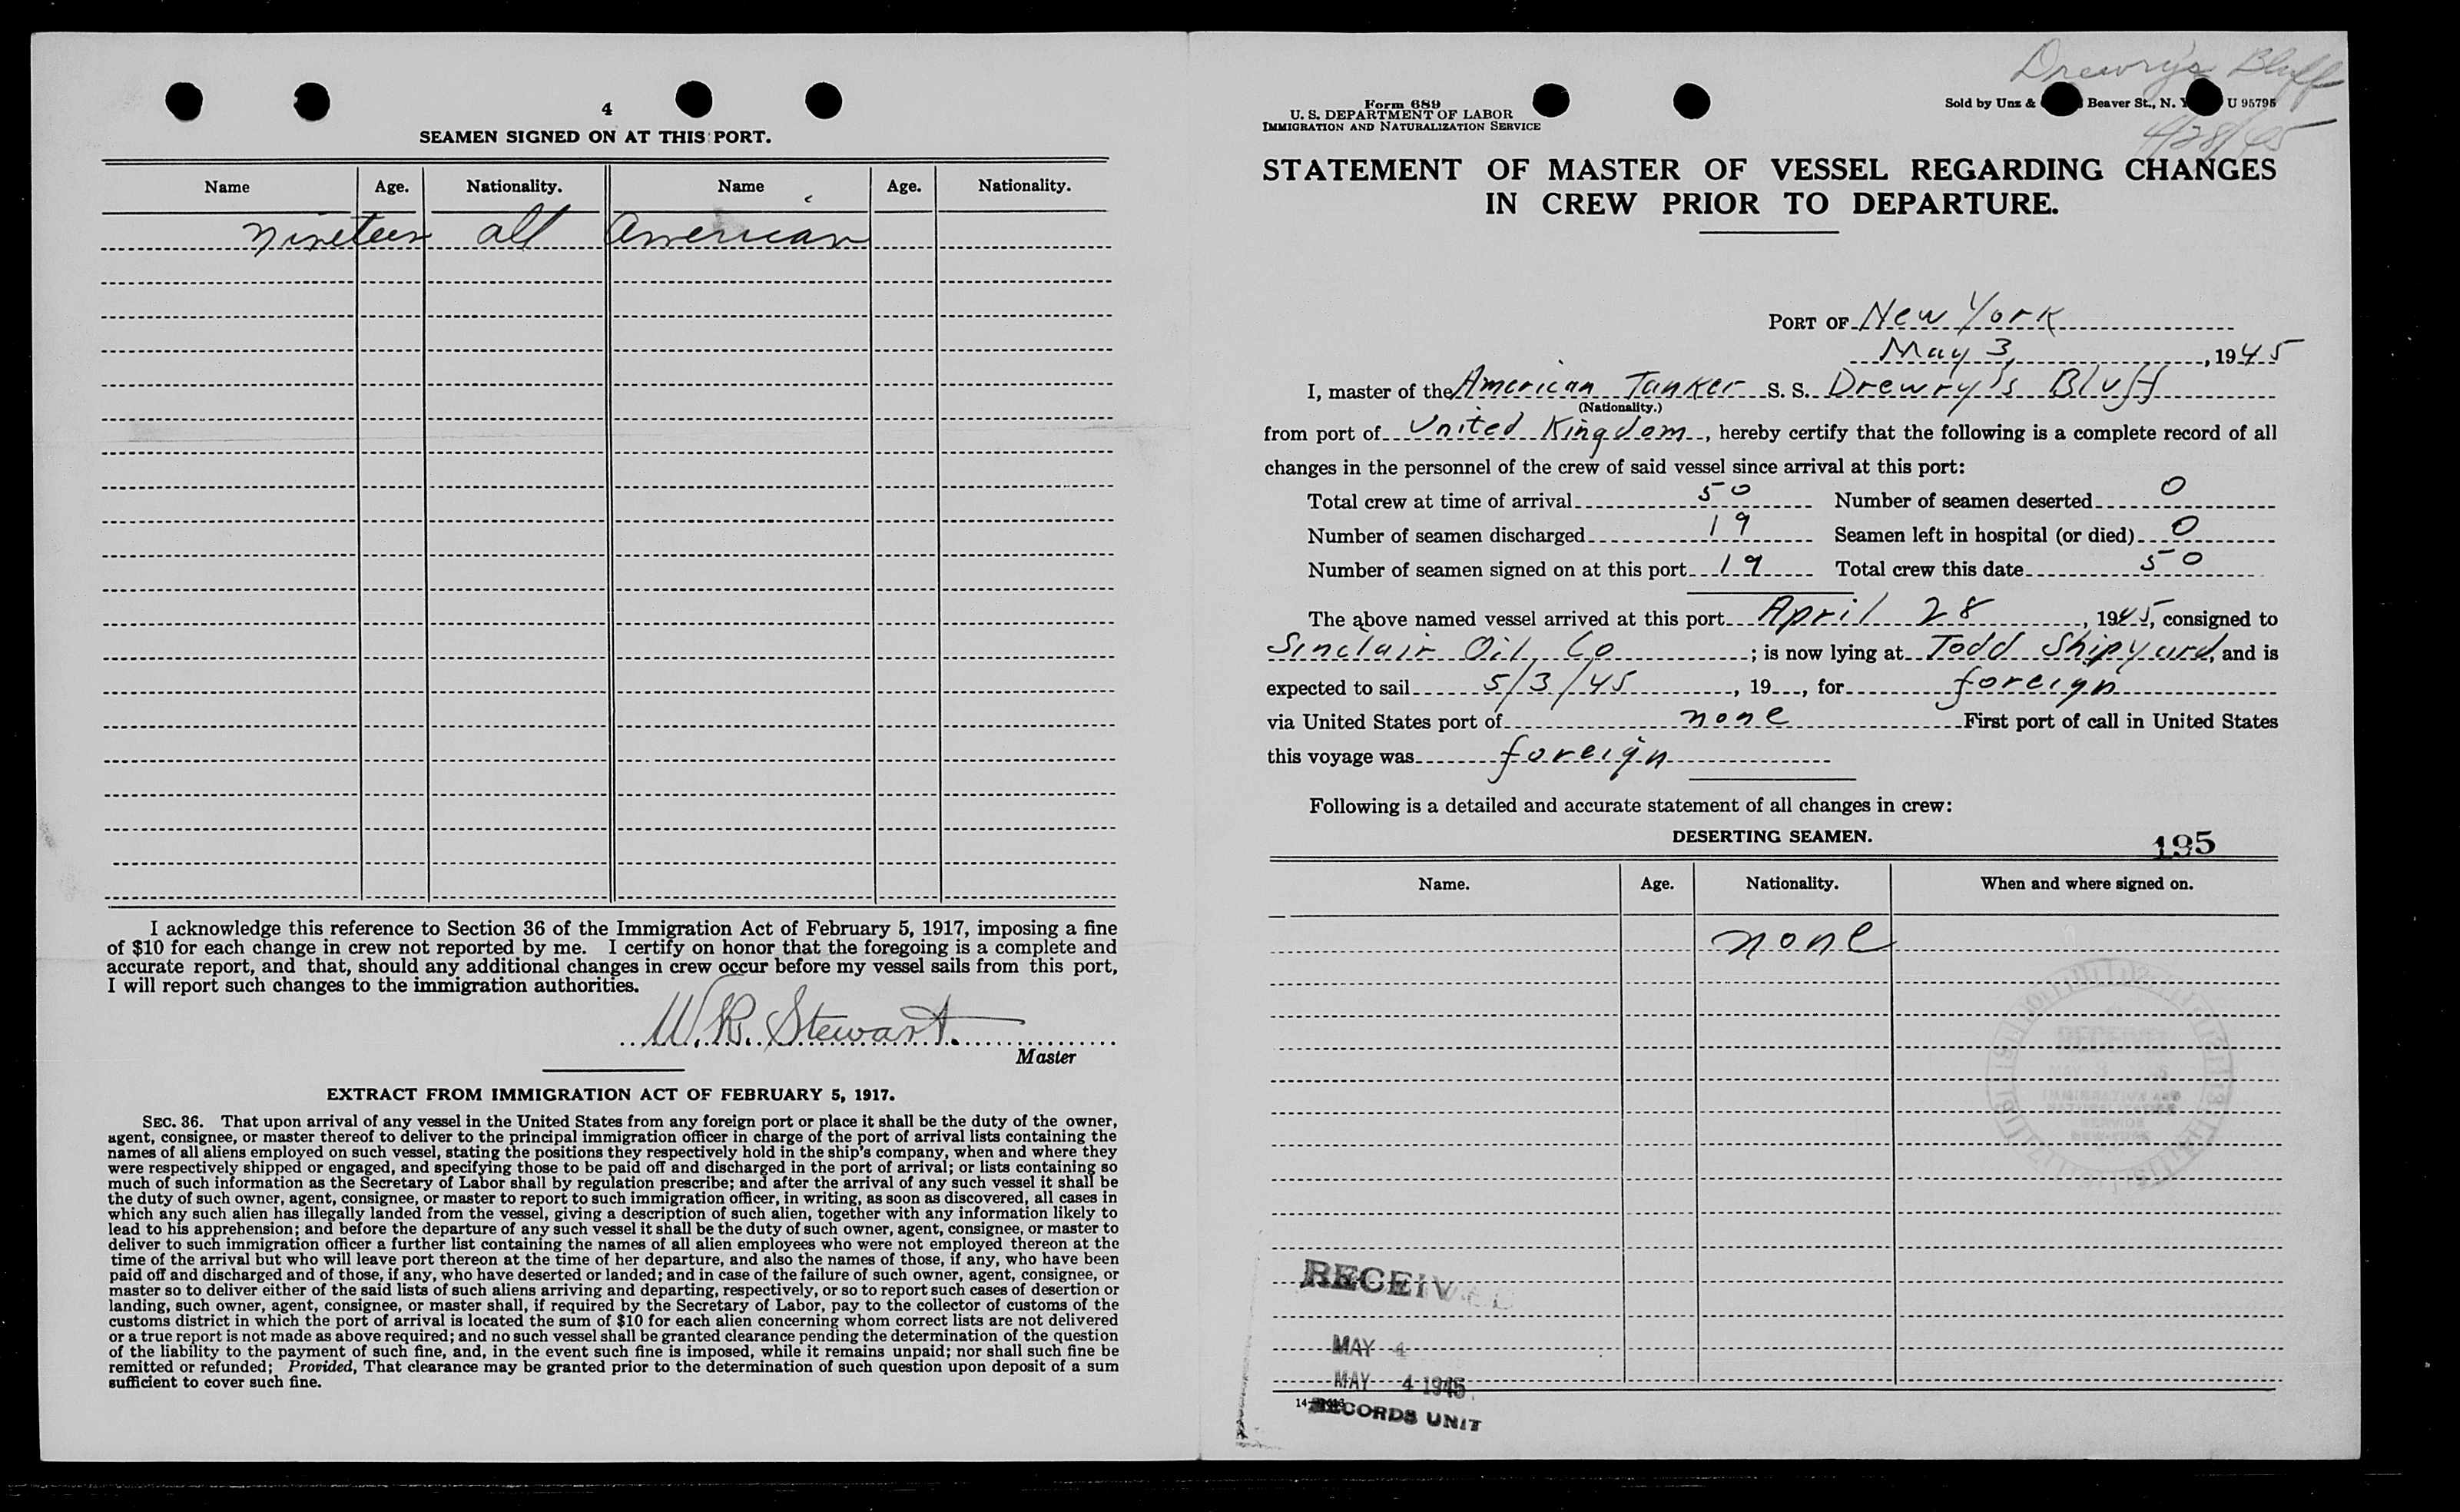 4
SEAMEN SIGNED ON AT THIS PORT.
Name Age. Nationality. Name Age. Nationality.
nineteen all American
I acknowledge this reference to Section 36 of the Immigration Act of February 5, 1917, imposing a fine
of $10 for each change in crew not reported by me. I certify on honor that the foregoing is a complete and
accurate report, and that, should any additional changes in crew occur before my vessel sails from this port,
I will report such changes to the immigration authorities.
W.R. Stewart
Master
EXTRACT FROM IMMIGRATION ACT OF FEBRUARY 5, 1917.
SEC. 36. That upon arrival of any vessel in the United States from any foreign port or place it shall be the duty of the owner,
agent, consignee, or master thereof to deliver to the principal immigration officer in charge of the port of arrival lists containing the
names of all aliens employed on such vessel, stating the positions they respectively hold in the ship's company, when and where they
were respectively shipped or engaged, and specifying those to be paid off and discharged in the port of arrival; or lists containing so
much of such information as the Secretary of Labor shall by regulation prescribe; and after the arrival of any such vessel it shall be
the duty of such owner, agent, consignee, or master to report to such immigration officer, in writing, as soon as discovered, all cases in
which any such alien has illegally landed from the vessel, giving a description of such alien, together with any information likely to
lead to his apprehension; and before the departure of any such vessel it shall be the duty of such owner, agent, consignee, or master to
deliver to such immigration officer a further list containing the names of all alien employees who were not employed thereon at the
time of the arrival but who will leave port thereon at the time of her departure, and also the names of those, if any, who have been
paid off and discharged and of those, if any, who have deserted or landed; and in case of the failure of such owner, agent, consignee, or
master so to deliver either of the said lists of such aliens arriving and departing, respectively, or so to report such cases of desertion or
landing, such owner, agent, consignee, or master shall, if required by the Secretary of Labor, pay to the collector of customs of the
customs district in which the port of arrival is located the sum of $10 for each alien concerning whom correct lists are not delivered
or a true report is not made as above required; and no such vessel shall be granted clearance pending the determination of the question
of the liability to the payment of such fine, and, in the event such fine is imposed, while it remains unpaid; nor shall such fine be
remitted or refunded; Provided, That clearance may be granted prior to the determination of such question upon deposit of a sum
sufficient to cover such fine.
Drewry's Bluff
4/28/45
Form 689
U. S. DEPARTMENT OF LABOR
IMMIGRATION AND NATURALIZATION SERVICE
Sold by Unz & Beaver St., N. Y. U 95795
STATEMENT OF MASTER OF VESSEL REGARDING CHANGES
IN CREW PRIOR TO DEPARTURE.
PORT OF New York
May 3, , 1945
I, master of the American Tanker S. S. Drewry's Bluff
(Nationality.)
from port of United Kingdom, hereby certify that the following is a complete record of all
changes in the personnel of the crew of said vessel since arrival at this port:
Total crew at time of arrival 50 Number of seamen deserted 0
Number of seamen discharged 19 Seamen left in hospital (or died) 0
Number of seamen signed on at this port 19 Total crew this date 50
The above named vessel arrived at this port April 28, 1945, consigned to
Sinclair Oil Co; is now lying at Todd Shipyard, and is
expected to sail 5/3/45, 19 , for foreign
via United States port of none First port of call in United States
this voyage was foreign
Following is a detailed and accurate statement of all changes in crew:
DESERTING SEAMEN.
195
Name. Age. Nationality. When and where signed on.
none
RECEIVED
MAY 3
IMMIGRATION AND
NATURALIZATION
SERVICE
NEW YORK
RECEIVED
MAY 4
MAY 4 1945
RECORDS UNIT